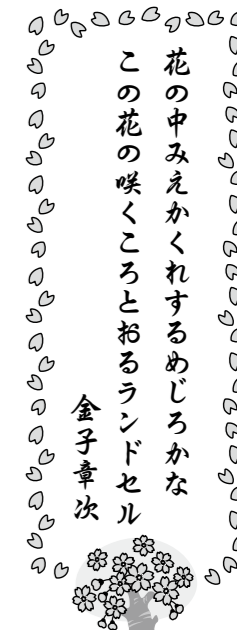 花の中みえかくれするめじろかな
この花の咲くころとおるランドセル
金子章次